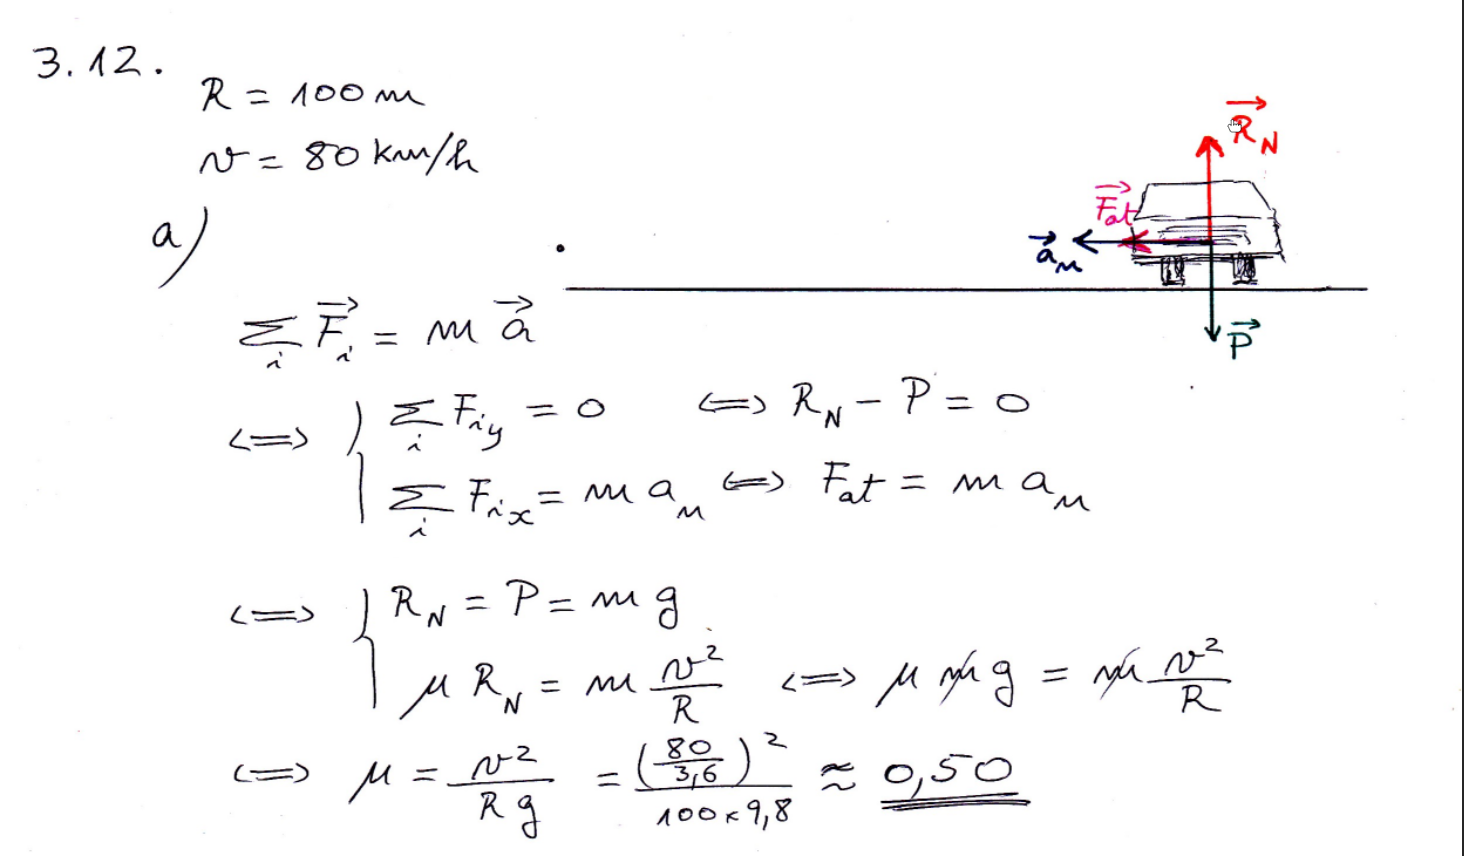 3.12.
R = 100 m
v = 80 km/h
a)
R⃗_N
F⃗_at
a⃗_n
P⃗
∑_i F⃗_i = m a⃗
<=> { ∑_i F_iy = 0 <=> R_N - P = 0
∑_i F_ix = m a_n <=> F_at = m a_n
<=> { R_N = P = m g
μ R_N = m v²/R <=> μ m g = m v²/R
<=> μ = v²/(R g) = (80/3,6)²/(100 × 9,8) ≈ 0,50